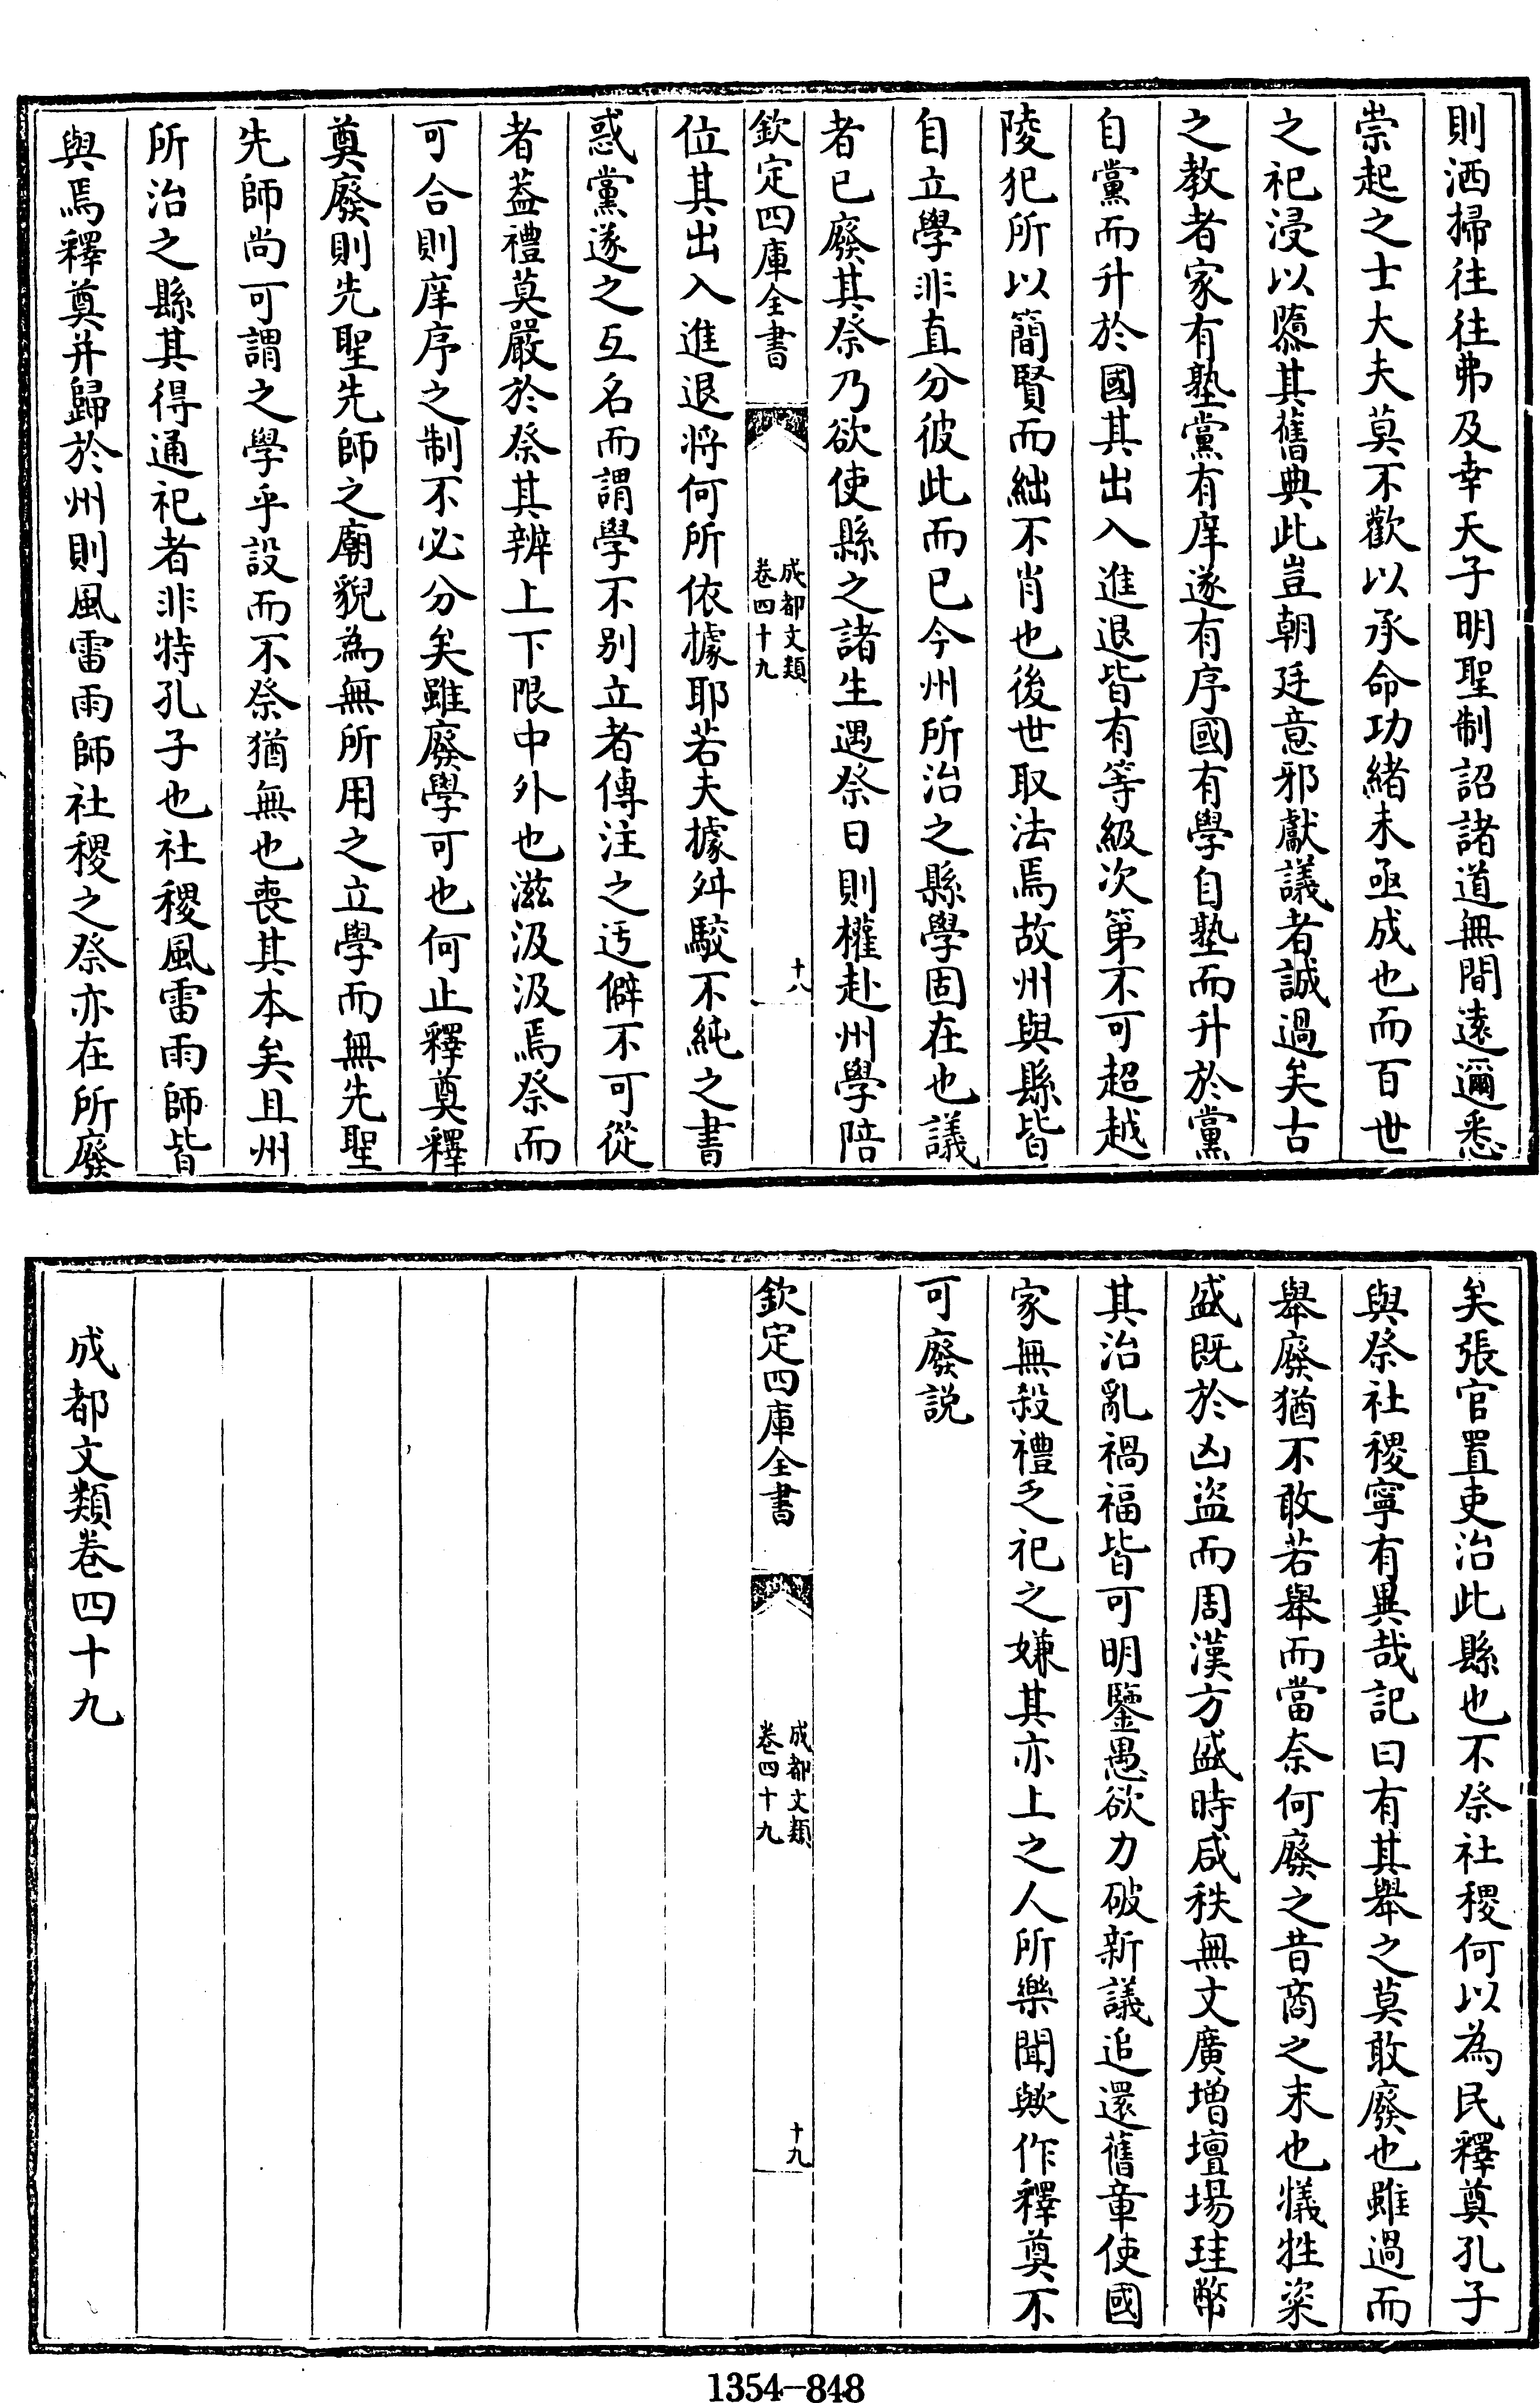 則洒掃往往弗及幸天子明聖制詔諸道無間遠邇悉
崇起之士大夫莫不歡以承命功緒未亟成也而百世
之祀浸以隳其舊典此豈朝廷意邪獻議者誠過矣古
之教者家有塾黨有庠遂有序國有學自塾而升於黨
自黨而升於國其出入進退皆有等級次第不可超越
陵犯所以簡賢而絀不肖也後世取法焉故州與縣皆
自立學非直分彼此而已今州所治之縣學固在也議
者已廢其祭乃欲使縣之諸生遇祭日則權赴州學陪
欽定四庫全書
成都文類
卷四十九
十八
位其出入進退將何所依據耶若夫據舛駮不純之書
惑黨遂之互名而謂學不别立者傳注之迃僻不可從
者葢禮莫嚴於祭其辨上下限中外也滋汲汲焉祭而
可合則庠序之制不必分矣雖廢學可也何止釋奠釋
奠廢則先聖先師之廟貌為無所用之立學而無先聖
先師尚可謂之學乎設而不祭猶無也喪其本矣且州
所治之縣其得通祀者非特孔子也社稷風雷雨師皆
與焉釋奠并歸於州則風雷雨師社稷之祭亦在所廢
矣張官置吏治此縣也不祭社稷何以為民釋奠孔子
與祭社稷寧有異哉記曰有其舉之莫敢廢也雖過而
舉廢猶不敢若舉而當奈何廢之昔商之末也犧牲粢
盛既於凶盜而周漢方盛時咸秩無文廣增壇場珪幣
其治亂禍福皆可明鑒愚欲力破新議追還舊章使國
家無殺禮乏祀之嫌其亦上之人所樂聞歟作釋奠不
可廢説
欽定四庫全書
成都文類
卷四十九
十九
成都文類卷四十九
1354-848